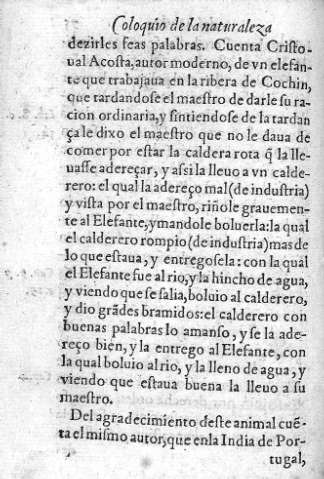 Coloquio de la naturaleza
dezirles feas palabras. Cuenta Cristo-
ual Acosta, autor moderno, de vn elefan-
te que trabajaua en la ribera de Cochin,
que tardandose el maestro de darle su ra-
cion ordinaria, y sintiendose de la tardan
ça le dixo el maestro que no le daua de
comer por estar la caldera rota q̃ la lle-
uasse adereçar, y assi la lleuo a vn calde-
rero: el qual la adereço mal (de industria)
y vista por el maestro, riñole grauemen-
te al Elefante, y mandole boluerla: la qual
el calderero rompio (de industria) mas de
lo que estaua, y entregosela: con la qual
el Elefante fue al rio, y la hincho de agua,
y viendo que se salia, boluio al calderero,
y dio grãdes bramidos: el calderero con
buenas palabras lo amanso, y se la ade-
reço bien, y la entrego al Elefante, con
la qual boluio al rio, y la lleno de agua, y
viendo que estaua buena la lleuo a su
maestro.
Del agradecimiento deste animal cuẽ-
ta el mismo autor, que en la India de Por-
tugal,